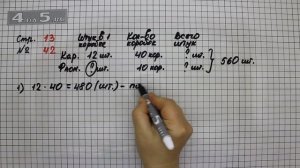 4 на 5
.COM
Стр. 13
№ 42
Штук в 1 коробке
Кол-во коробок
Всего штук
Кар. 12 шт. 40 кор. ? шт.
Флом. ? шт. 10 кор. ? шт.
560 шт.
1) 12 · 40 = 480 (шт.) – п